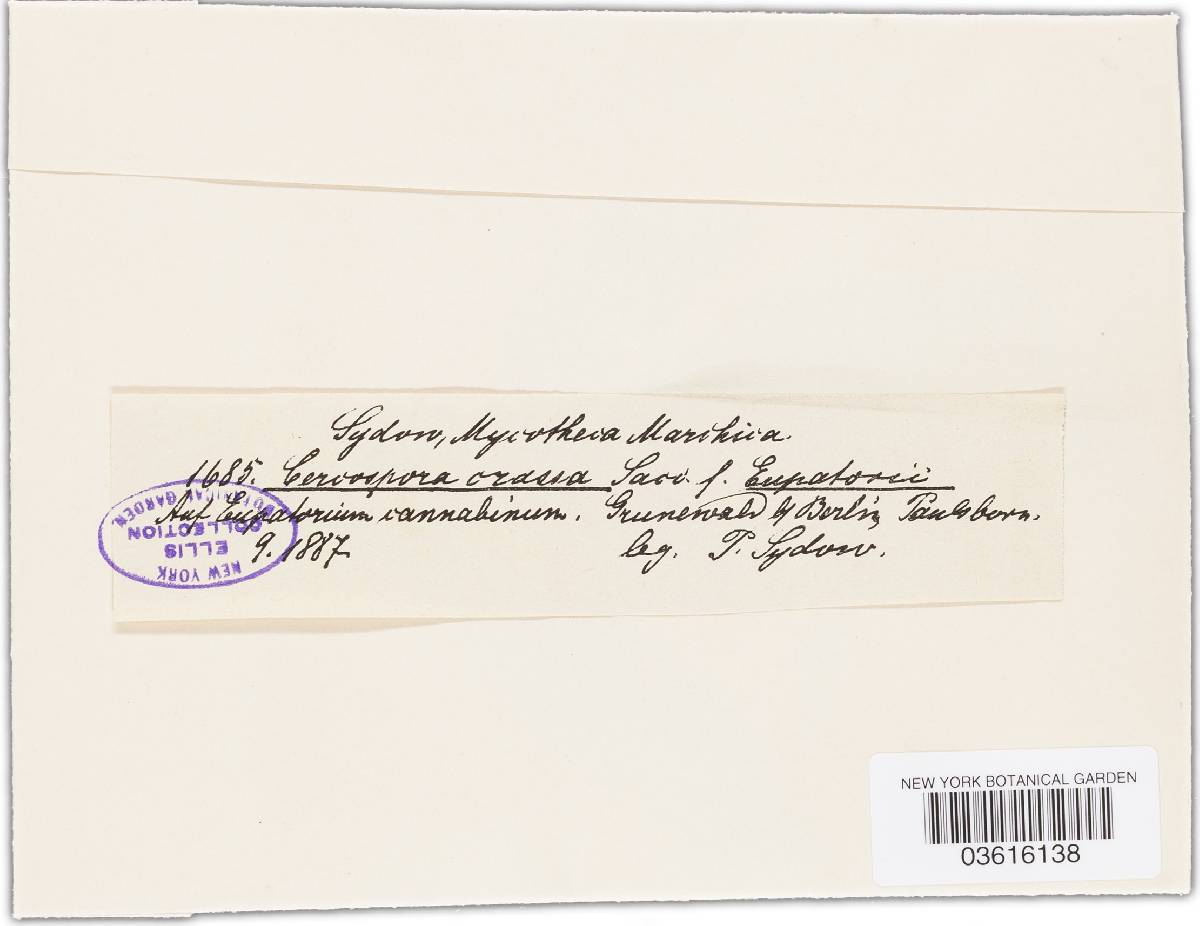 Sydow, Mycotheca Marchica.
1685. Cercospora crassa Sacc. f. Eupatorii
Auf Eupatorium cannabinum. Grunewald b/ Berlin, Paulsborn.
9. 1887. leg. P. Sydow.
NEW YORK
ELLIS
COLLECTION
BOTANICAL GARDEN
NEW YORK BOTANICAL GARDEN
03616138